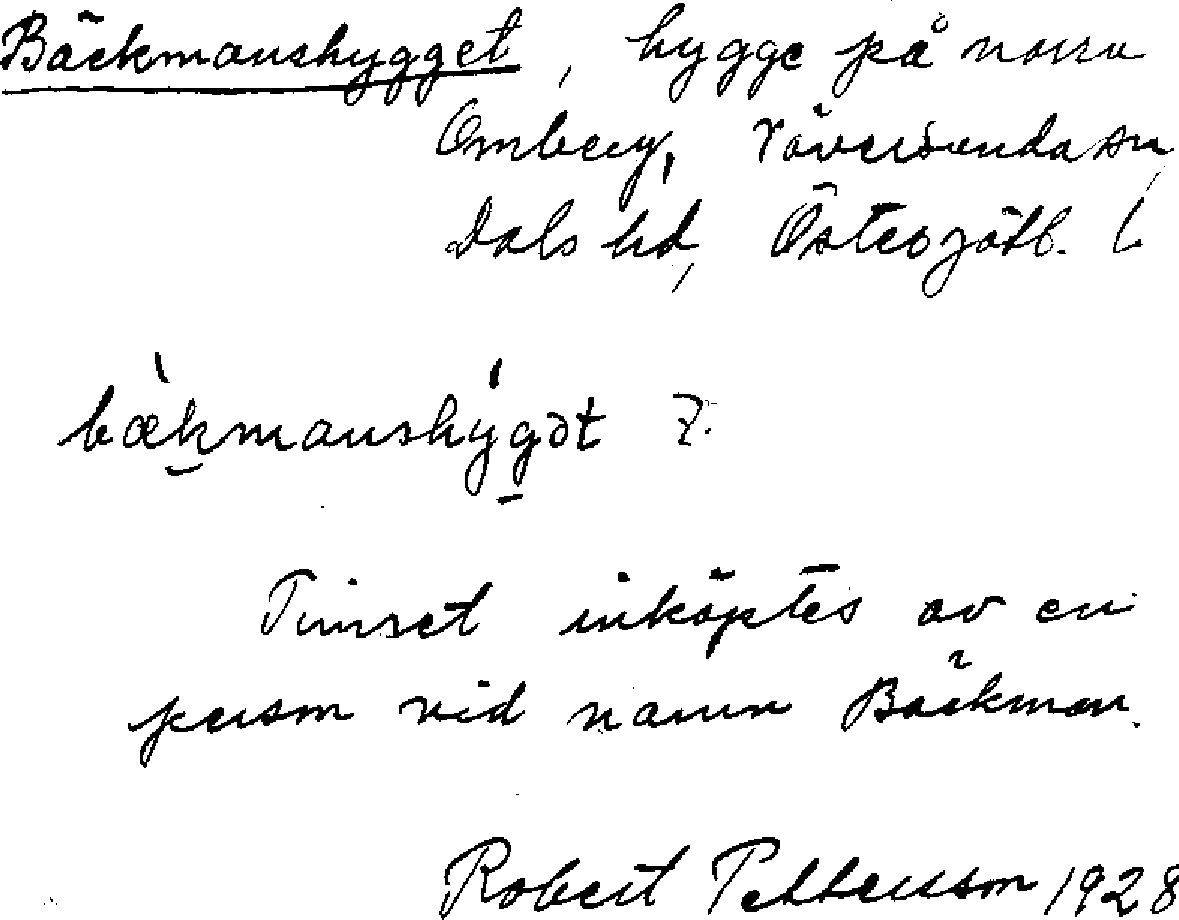 Bäckmanshygget, hygge på norra
Omberg, Väversunda sn,
Dals hd, Östergötl. l.
bækmanshýgət ?.
Timret inköptes av en
person vid namn Bäckman.
Robert Pettersson 1928